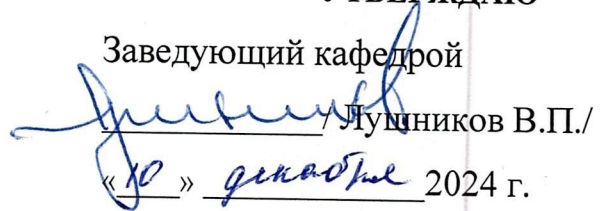 УТВЕРЖДАЮ
Заведующий кафедрой
/ Лушников В.П./
«10» декабря 2024 г.